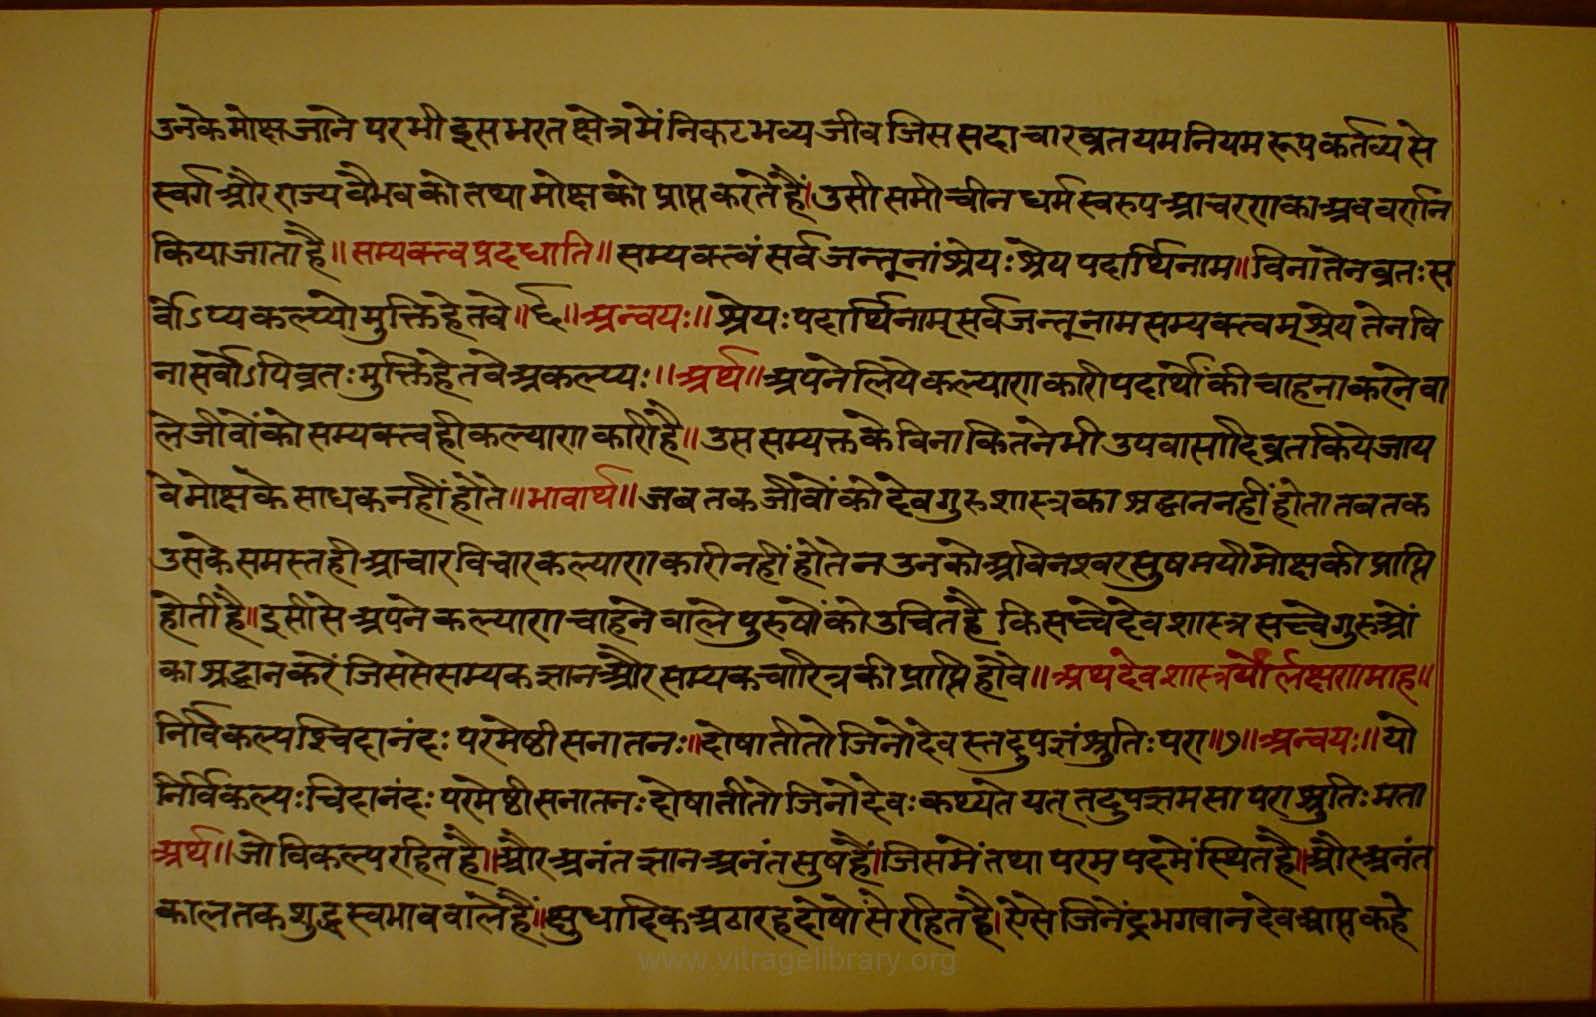 उनके मोक्ष जाने पर भी इस भरत क्षेत्र में निकट भव्य जीव जिस सदाचार व्रत यम नियम रूप कर्तव्य से
स्वर्ग और राज्य वैभव को तथा मोक्ष को प्राप्त करते हैं। उसी समीचीन धर्म स्वरुप आचरण का अब वर्णन
किया जाता है॥ सम्यक्त्व प्रदधाति॥ सम्यक्त्वं सर्व जन्तूनां श्रेयः श्रेय पदार्थिनाम॥ विना तेन व्रतः स
र्वोऽप्यकल्प्यो मुक्ति हेतवे॥६॥ अन्वयः॥ श्रेयः पदार्थिनाम् सर्व जन्तूनाम सम्यक्त्वम् श्रेय तेन वि
ना सर्वोऽपि व्रतः मुक्ति हेतवे अकल्प्यः॥ अर्थ॥ अपने लिये कल्याण कारी पदार्थों की चाहना करने वा
ले जीवों को सम्यक्त्व ही कल्याण कारी है॥ उस सम्यक्त के विना कितने भी उपवासादि व्रत किये जाय
वे मोक्ष के साधक नहीं होते॥ भावार्थ॥ जब तक जीवों को देव गुरु शास्त्र का श्रद्धान नहीं होता तब तक
उसके समस्त ही आचार विचार कल्याण कारी नहीं होते न उनको अविनश्वर सुष मयी मोक्ष की प्राप्ति
होती है॥ इसी से अपने कल्याण चाहने वाले पुरुषों को उचित है कि सच्चे देव शास्त्र सच्चे गुरुओं
का श्रद्धान करें जिससे सम्यक ज्ञान और सम्यक चारित्र की प्राप्ति होवे॥ अथ देव शास्त्रयोर्लक्षणमाह॥
निर्विकल्पश्चिदानंदः परमेष्ठी सनातनः॥ दोषातीतो जिनो देवस्तदुपज्ञं श्रुतिः परा॥७॥ अन्वयः॥ यो
निर्विकल्पः चिदानंदः परमेष्ठी सनातनः दोषातीतो जिनो देवः कथ्यते यत् तदुपज्ञम सा परा श्रुतिः मता
अर्थ॥ जो विकल्प रहित है॥ और अनंत ज्ञान अनंत सुष है। जिसमें तथा परम पद में स्थित है॥ और अनंत
काल तक शुद्ध स्वभाव वाले हैं॥ क्षुधादिक अठारह दोषों से रहित है। ऐसे जिनेंद्र भगवान देव आप्त कहे
www.vitragelibrary.org